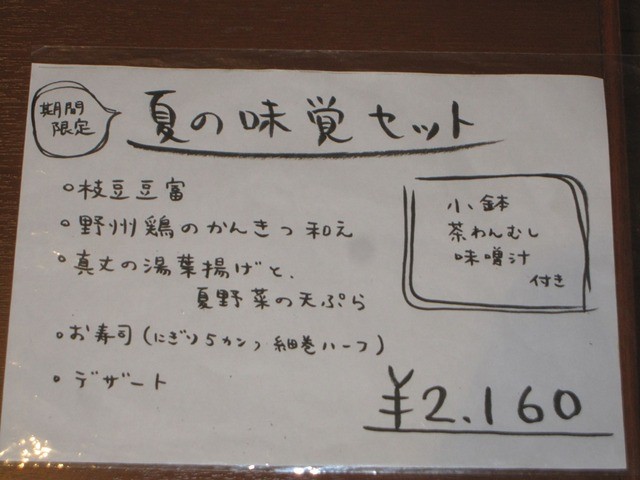 期間
限定
夏の味覚セット
。枝豆豆富
。野州鶏のかんきつ和え
。真丈の湯葉揚げと、
夏野菜の天ぷら
。お寿司(にぎり5カン、細巻ハーフ)
。デザート
小鉢
茶わんむし
味噌汁
付き
¥2.160